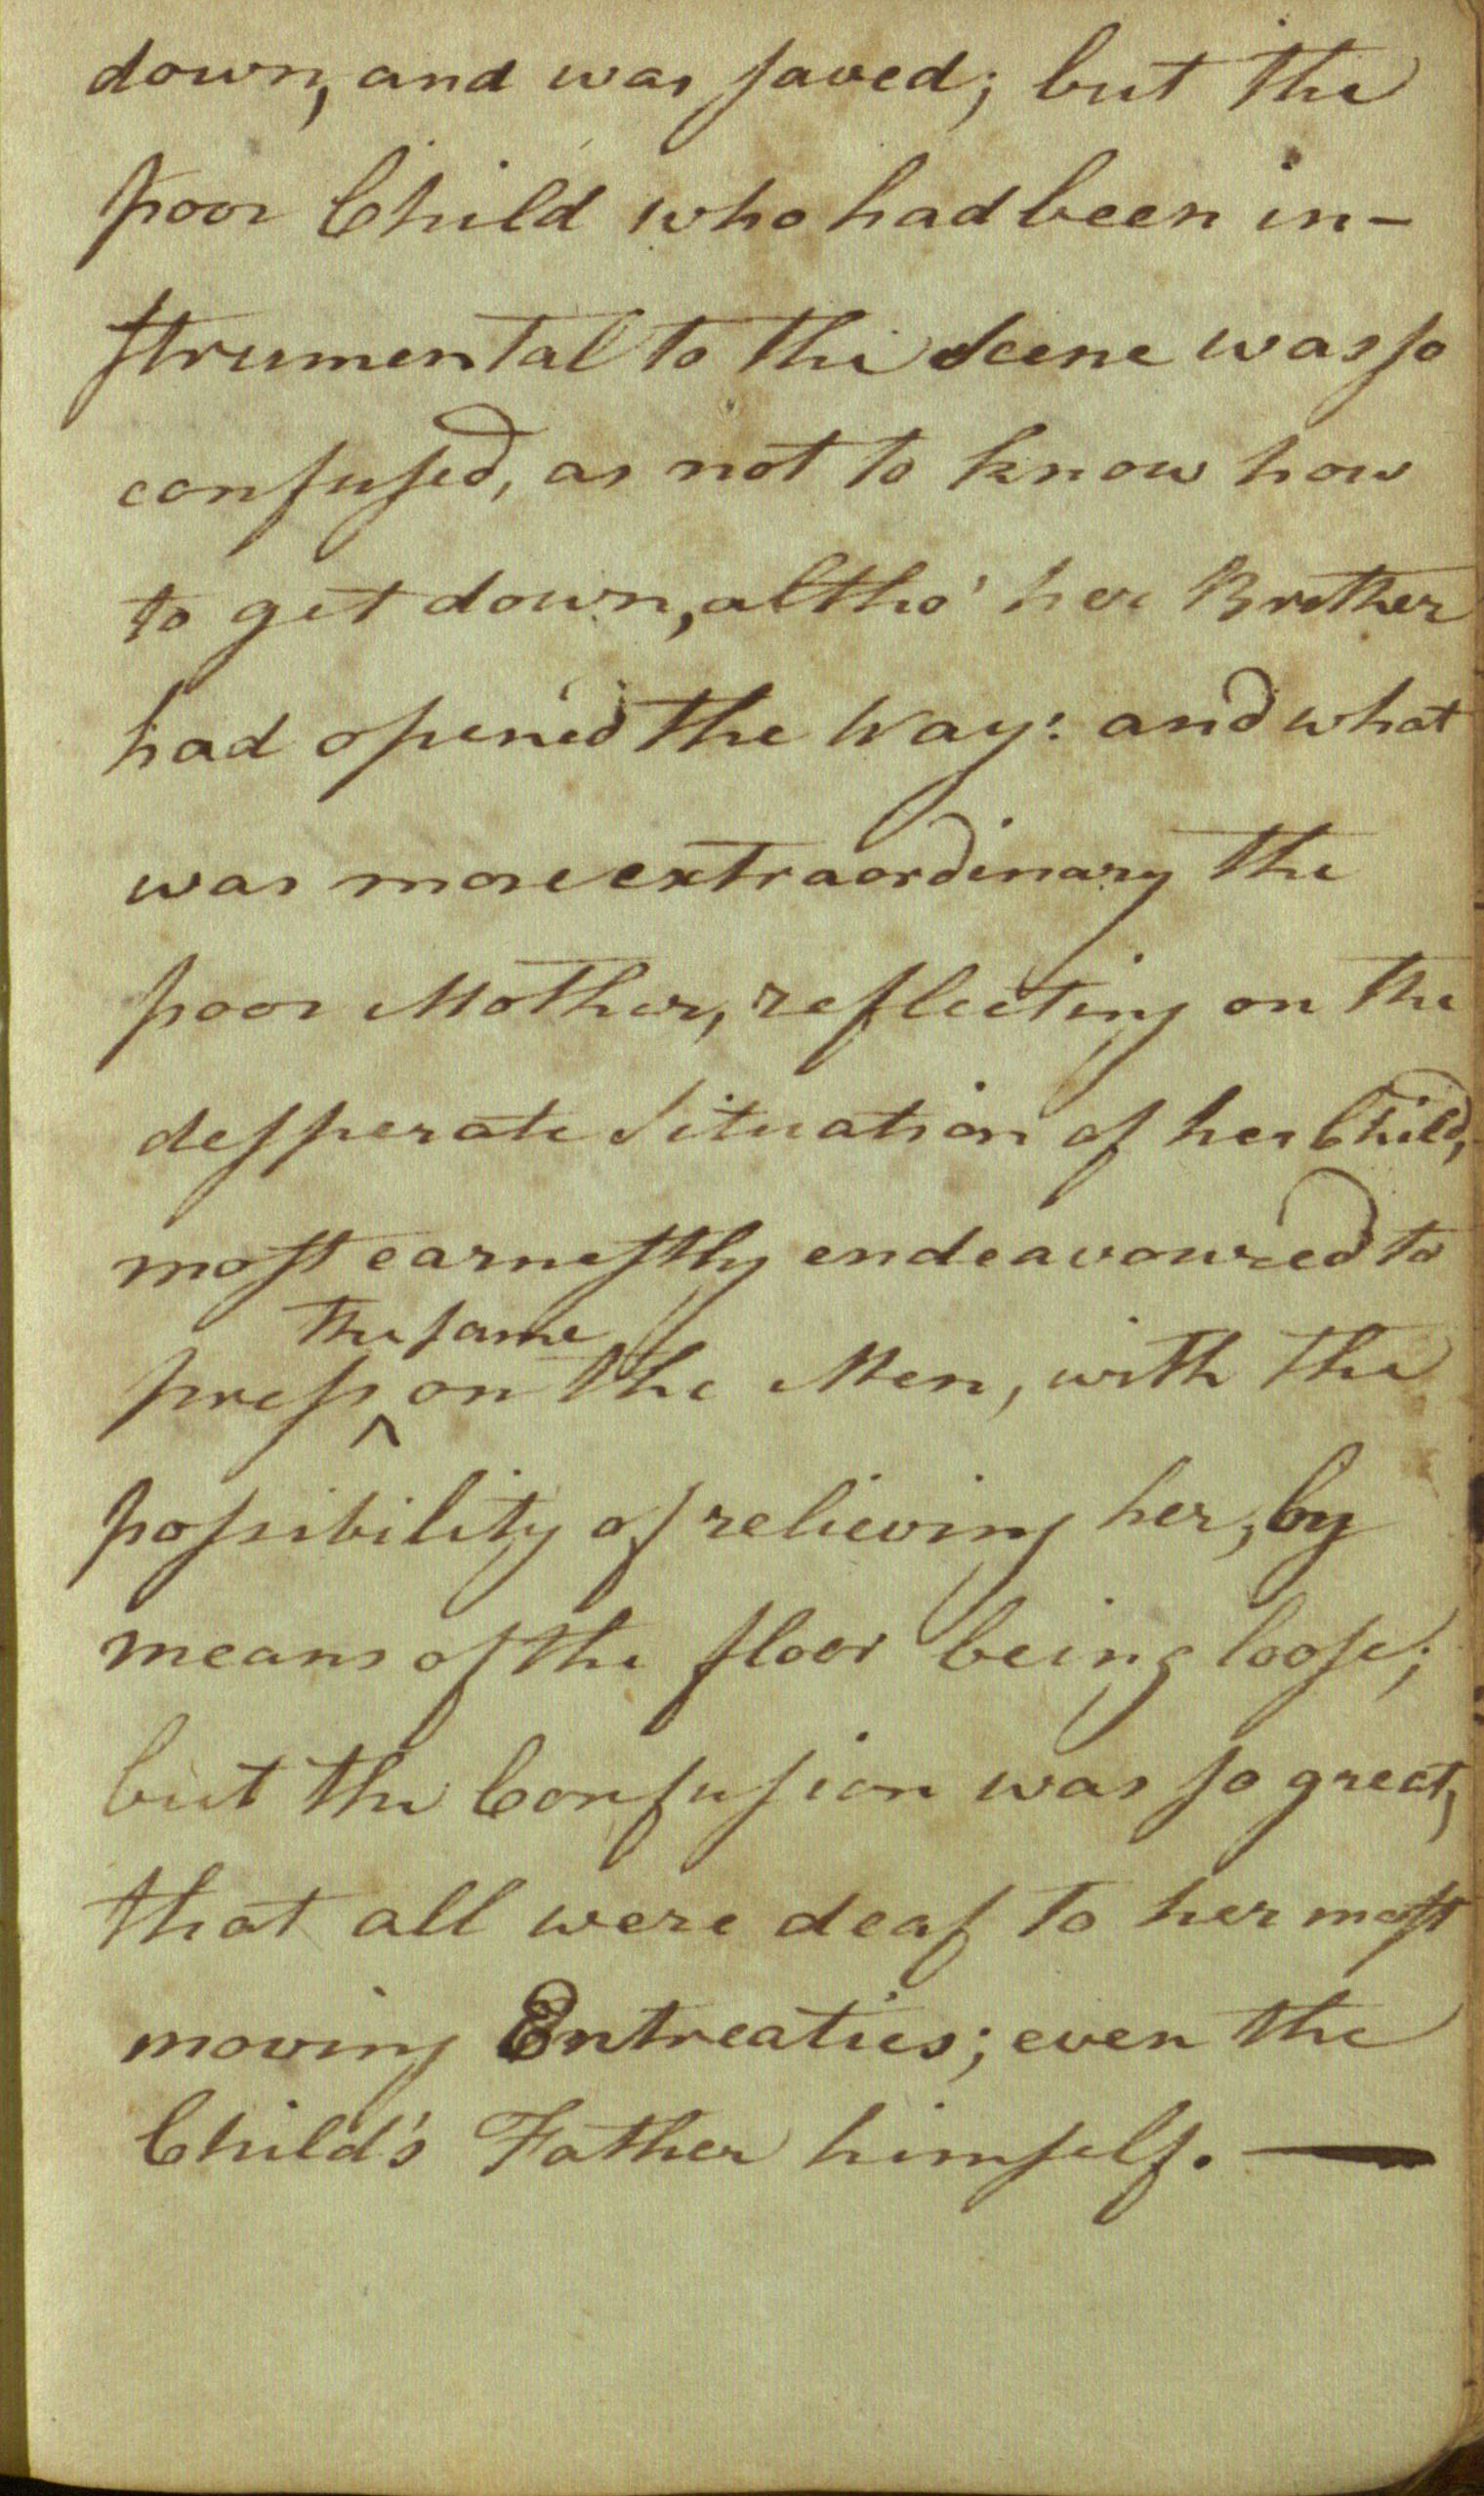 down, and was saved; but the
poor Child who had been in-
strumental to the Scene was so
confused, as not to know how
to get down, altho' her Brother
had open'd the Way: and what
was more extraordinary the
poor Mother, reflecting on the
desperate Situation of her Child,
most earnestly endeavoured to
the same
press ^ on the Men, with the
possibility of relieving her, by
means of the floor being loose;
but the Confusion was so great,
that all were deaf to her most
moving Entreaties; even the
Child's Father himself. —